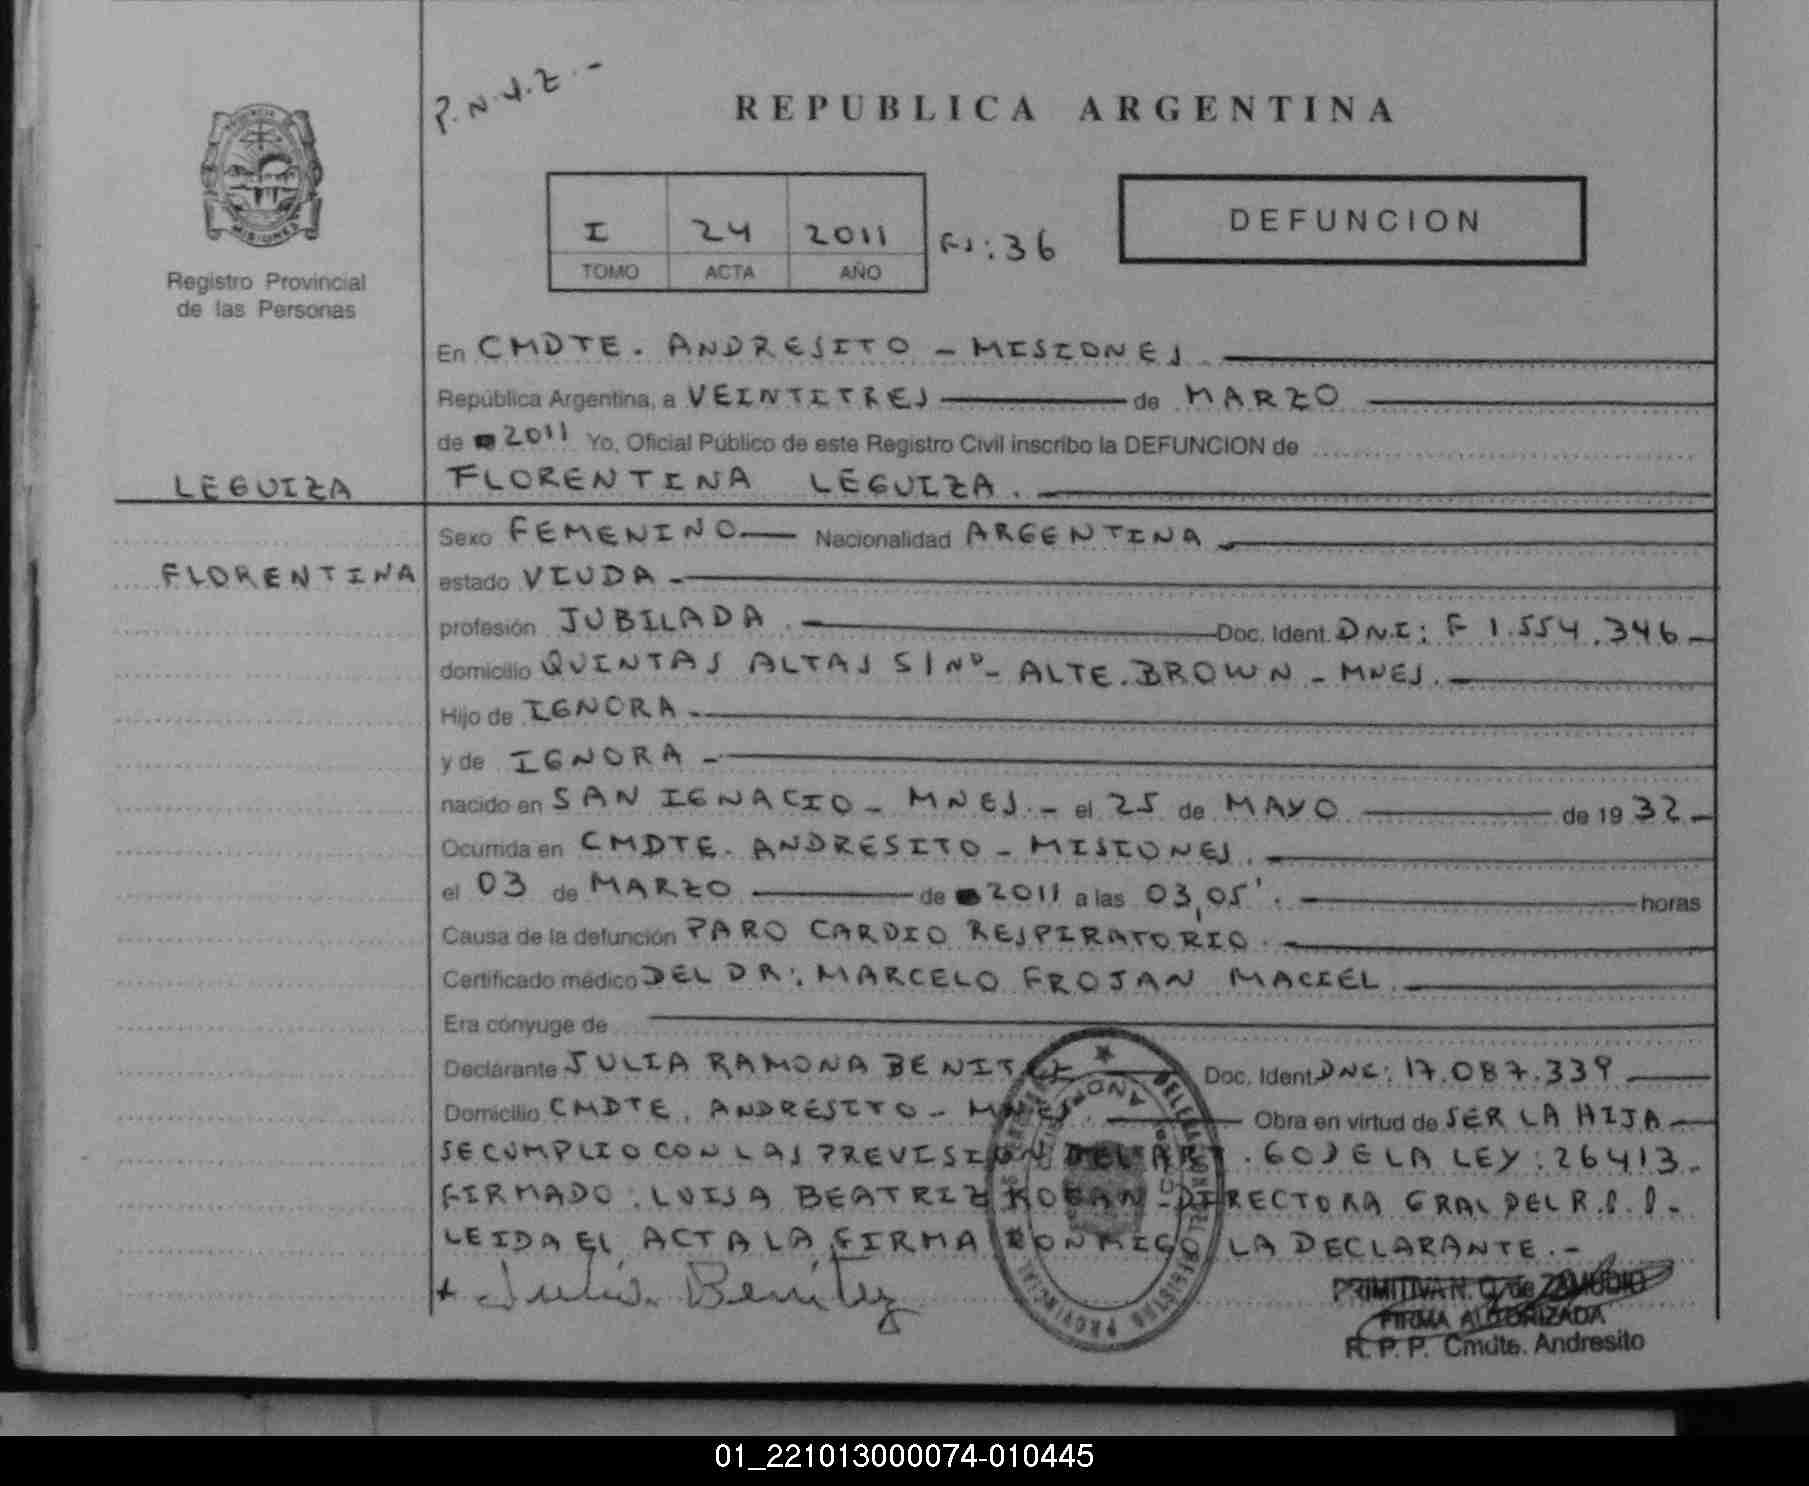 P.N.J.Z.-
REPUBLICA ARGENTINA
I 24 2011 FJ:36
TOMO ACTA AÑO
DEFUNCION
MISIONES
Registro Provincial
de las Personas
En CMDTE. ANDRESITO - MISIONES.
República Argentina, a VEINTITRES de MARZO
de 2011 Yo, Oficial Público de este Registro Civil inscribo la DEFUNCION de
LEGUIZA FLORENTINA LEGUIZA.
Sexo FEMENINO Nacionalidad ARGENTINA
FLORENTINA estado VIUDA-
profesión JUBILADA. Doc. Ident. DNI: F 1.554.346-
domicilio QUINTAS ALTAS S/Nº- ALTE. BROWN - MNES.-
Hijo de IGNORA-
y de IGNORA-
nacido en SAN IGNACIO- MNES.- el 25 de MAYO de 1932-
Ocurrida en CMDTE. ANDRESITO - MISIONES.
el 03 de MARZO de 2011 a las 03,05'. horas
Causa de la defunción PARO CARDIO RESPIRATORIO.
Certificado médico DEL DR: MARCELO FROJAN MACIEL.
Era cónyuge de
Declarante JULIA RAMONA BENITEZ Doc. Ident. DNI: 17.087.339
Domicilio CMDTE. ANDRESITO- MNES. Obra en virtud de SER LA HIJA
SE CUMPLIO CON LAS PREVISION DEL ART. 60 DE LA LEY: 26413.
FIRMADO: LUISA BEATRIZ KOBAN-DIRECTORA GRAL DEL R.P.P.
LEIDA EL ACTA LA FIRMA CONMIGO LA DECLARANTE.-
+ Julia Benitez
PRIMITIVA N. Q. de ZAMUDIO
FIRMA AUTORIZADA
R. P. P. Cmdte. Andresito
01_221013000074-010445